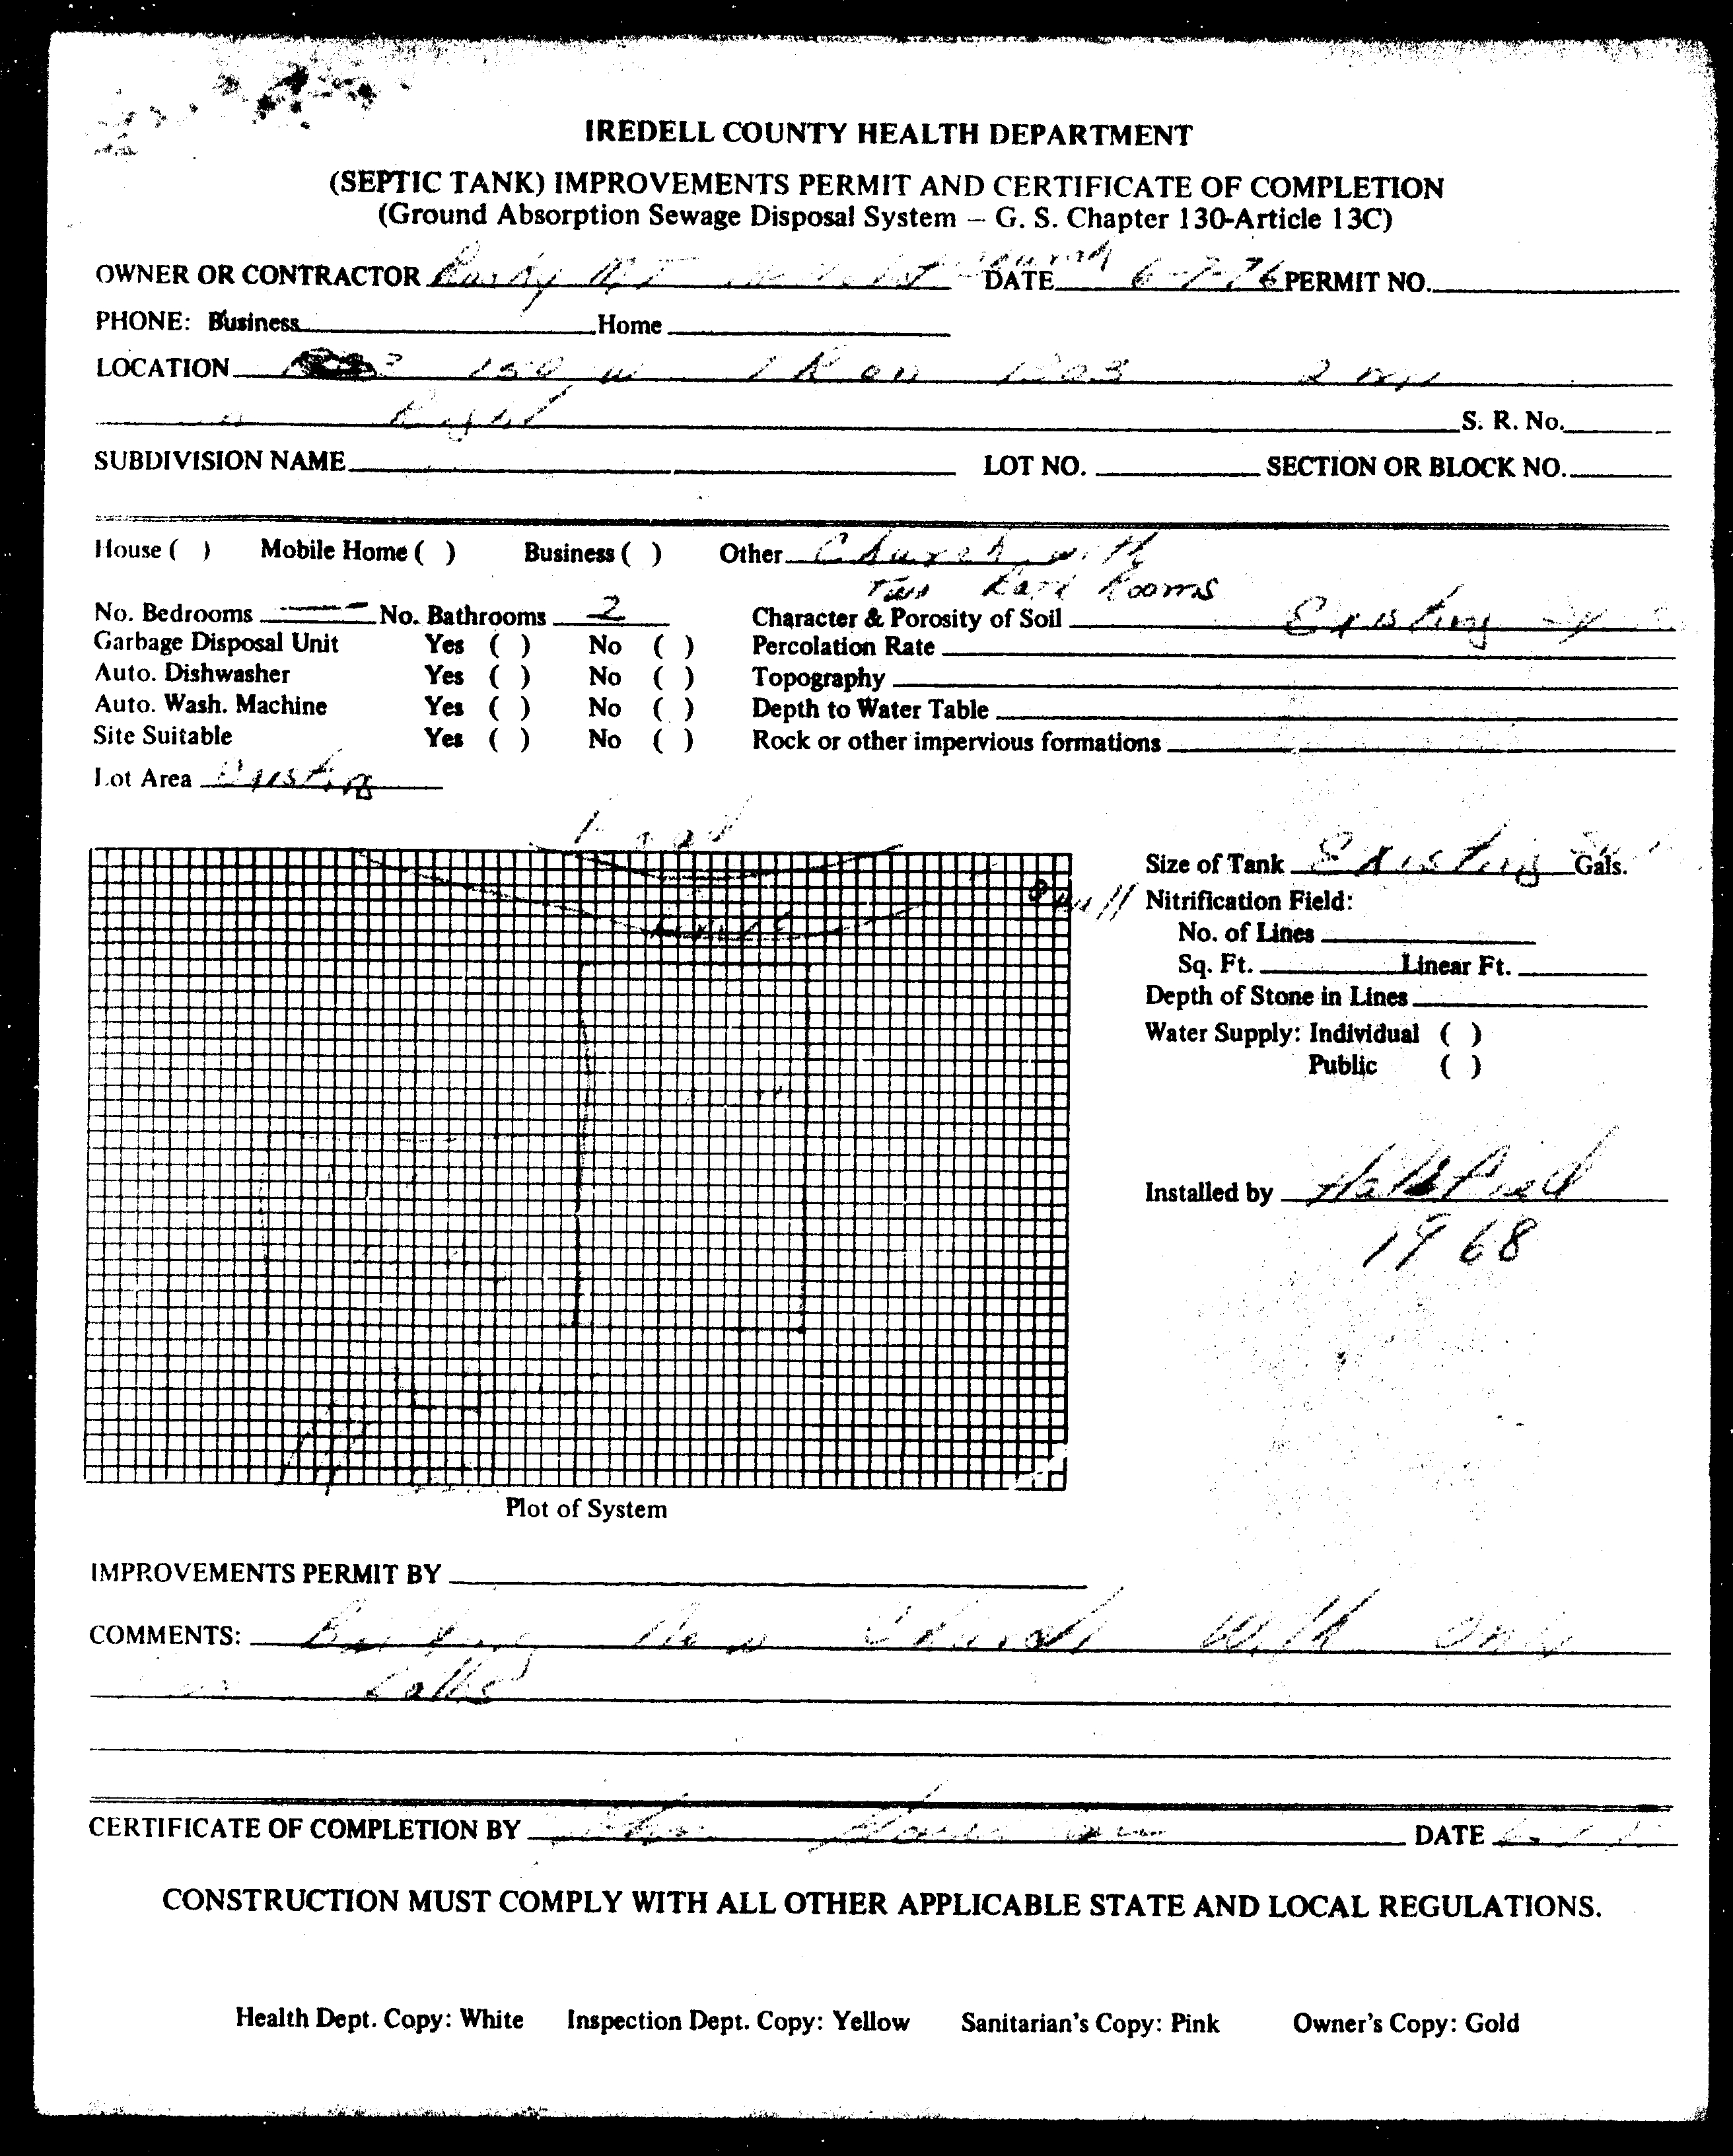 IREDELL COUNTY HEALTH DEPARTMENT
(SEPTIC TANK) IMPROVEMENTS PERMIT AND CERTIFICATE OF COMPLETION
(Ground Absorption Sewage Disposal System — G. S. Chapter 130-Article 13C)
OWNER OR CONTRACTOR Rocky Mt Church DATE 6-7-76 PERMIT NO.
PHONE: Business Home
LOCATION 150 W 1 R on 1303 2 mi
Right S. R. No.
SUBDIVISION NAME LOT NO. SECTION OR BLOCK NO.
House ( ) Mobile Home ( ) Business ( ) Other Church with
Two Rooms
No. Bedrooms — No. Bathrooms 2 Character & Porosity of Soil Existing
Garbage Disposal Unit Yes ( ) No ( ) Percolation Rate
Auto. Dishwasher Yes ( ) No ( ) Topography
Auto. Wash. Machine Yes ( ) No ( ) Depth to Water Table
Site Suitable Yes ( ) No ( ) Rock or other impervious formations
Lot Area Existing
Road
Size of Tank Existing Gals.
well
Nitrification Field:
No. of Lines
Sq. Ft. Linear Ft.
Depth of Stone in Lines
Water Supply: Individual ( )
Public ( )
Installed by
1968
Plot of System
IMPROVEMENTS PERMIT BY
COMMENTS: Building New Church With Only
Baths
CERTIFICATE OF COMPLETION BY DATE
CONSTRUCTION MUST COMPLY WITH ALL OTHER APPLICABLE STATE AND LOCAL REGULATIONS.
Health Dept. Copy: White Inspection Dept. Copy: Yellow Sanitarian's Copy: Pink Owner's Copy: Gold